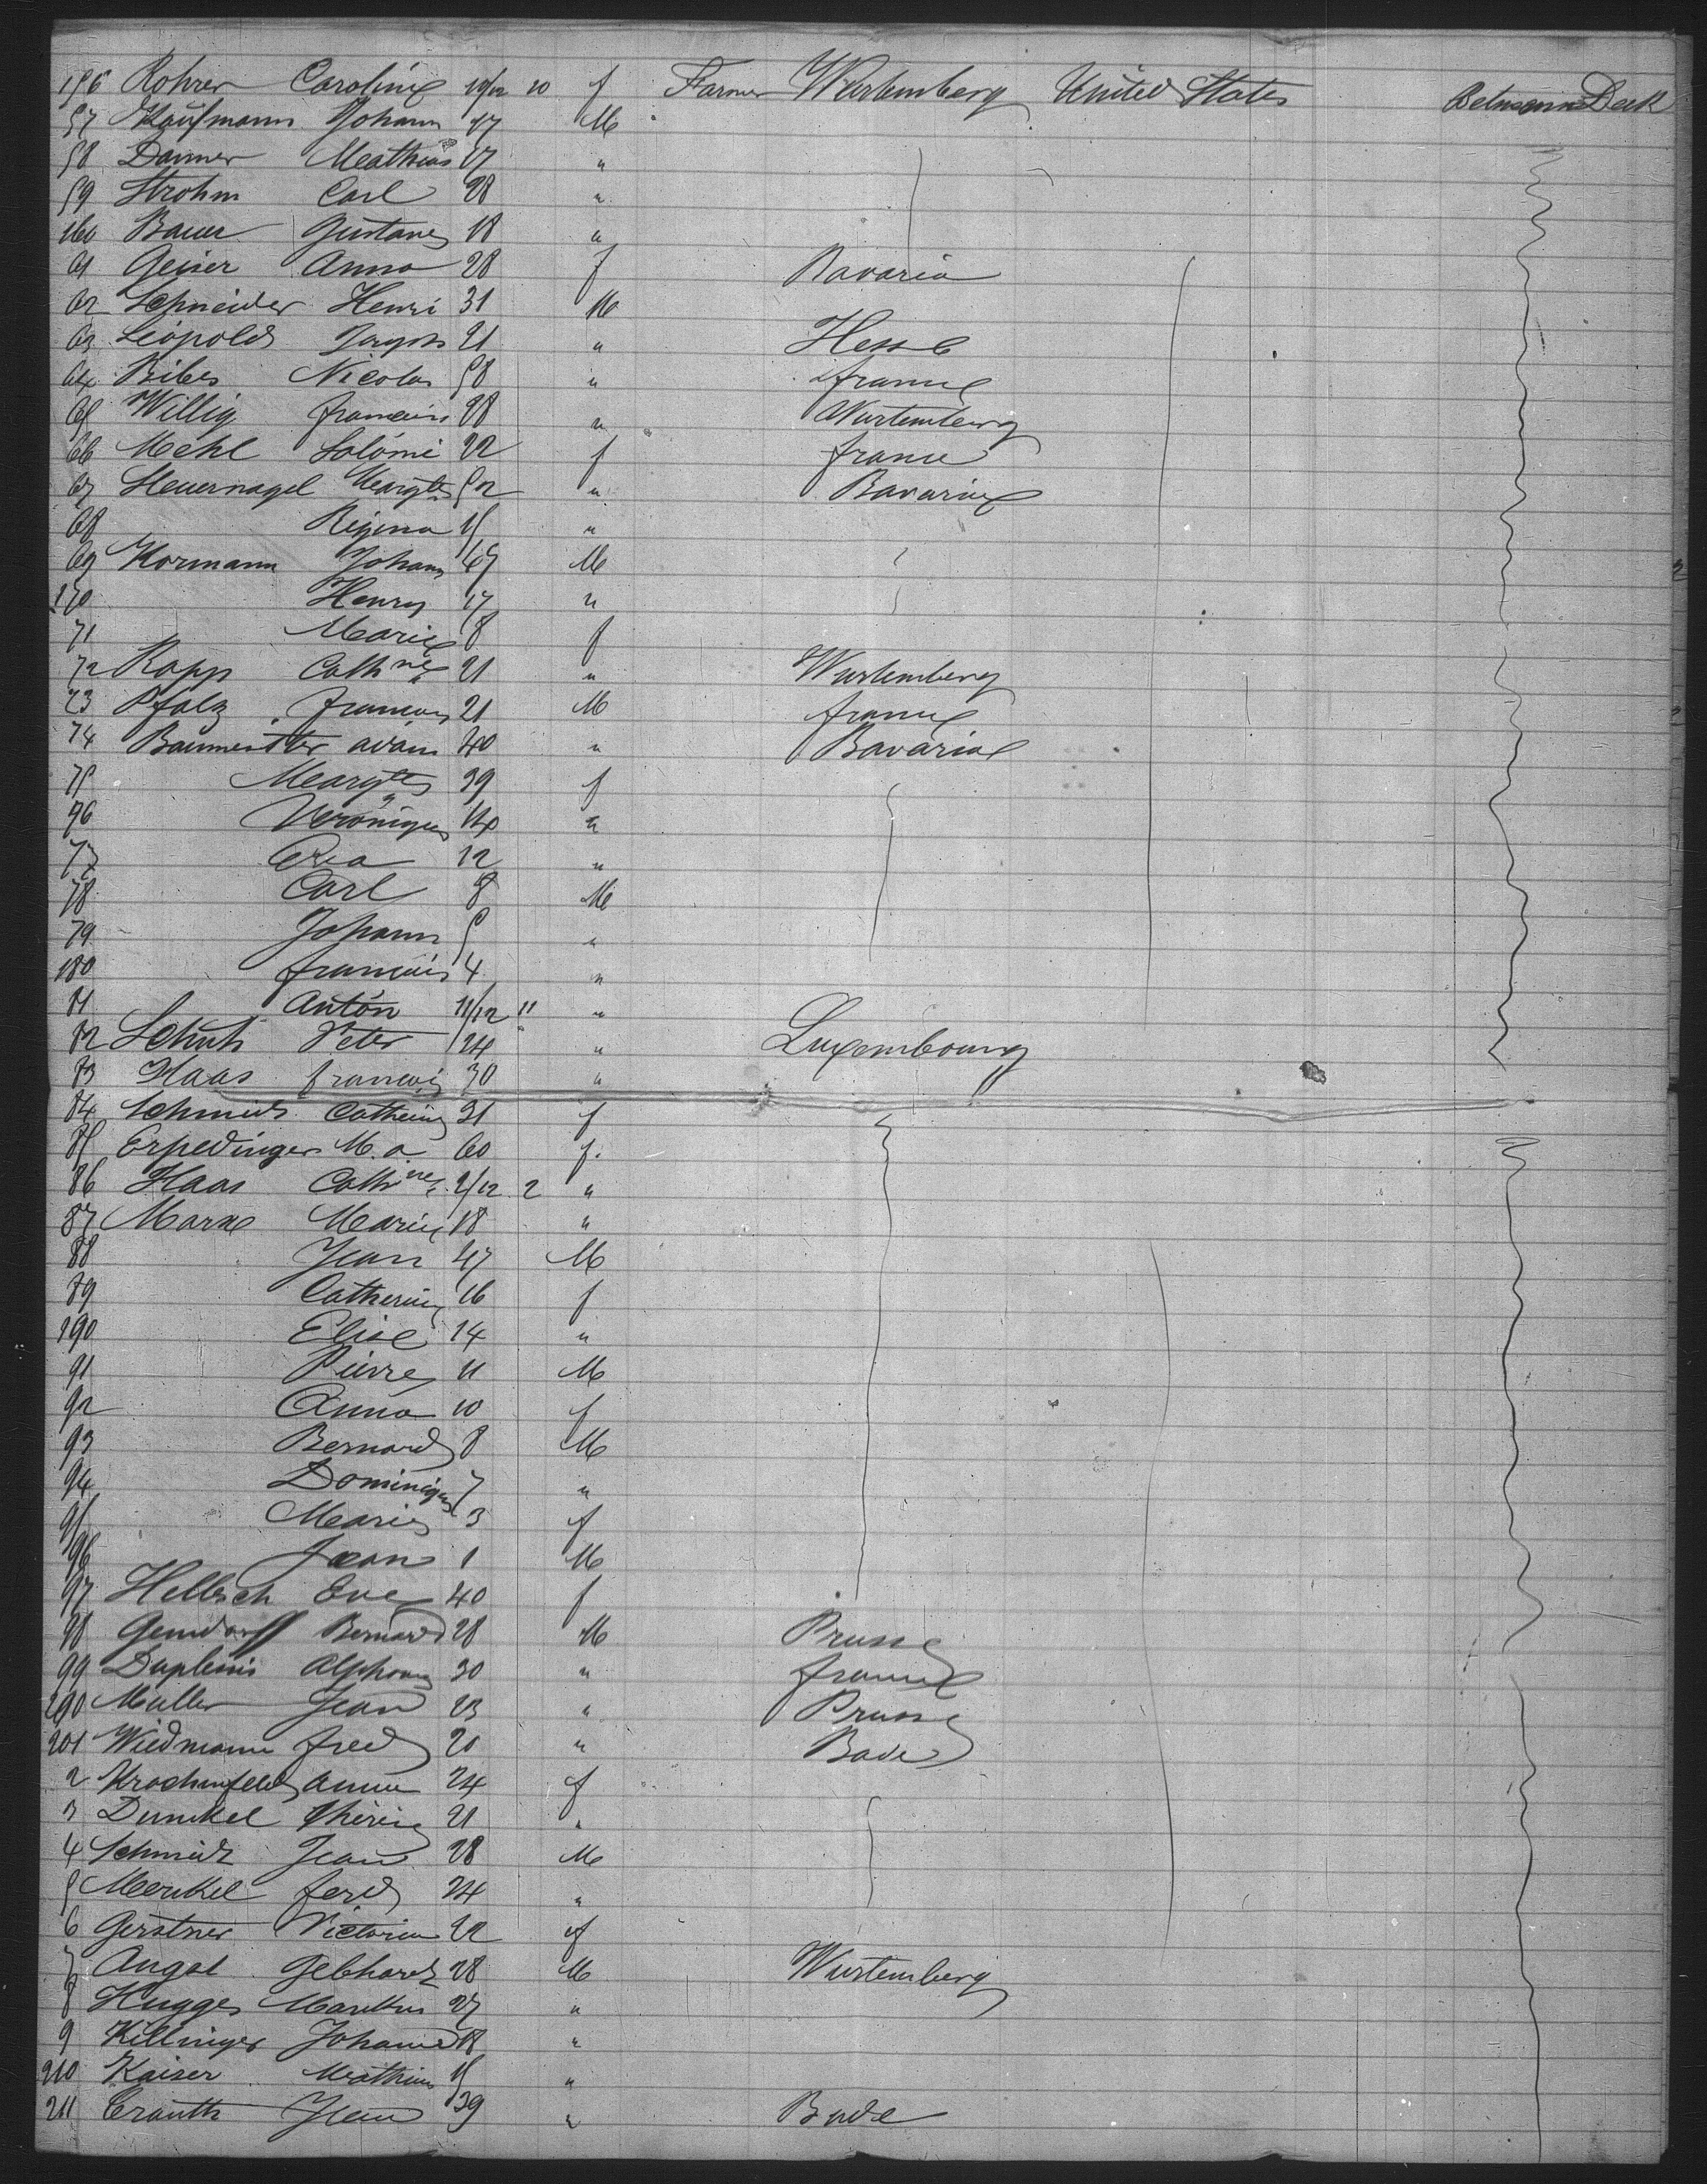 156 Rohrer Caroline 10/12 10 f Farmer Wurtemberg United States Between Deck
57 Kaufmann Johann 47 M
58 Danner Mathias 27 "
59 Strohm Carl 28 "
160 Bauer Gustave 18 "
61 Geiser Anna 28 f Bavaria
62 Schneider Henri 31 M
63 Léopold 21 " Hesse
64 Bibes Nicolas 58 " France
65 Willig François 28 " Wurtemberg
66 Mehl Salómé 22 f France
67 Steuernagel Margte 52 " Bavaria
68 Regina 15 "
69 Kormann Johann 47 M
170 Henry 17 "
71 Marie 8 f
72 Rapp Cathne 21 " Wurtemberg
73 Pfalz François 21 M France
74 Baumeister Adam 40 " Bavaria
75 Margte 39 f
76 Véronique 14 "
77 Eva 12 "
78 Carl 8 M
79 Johann 5 "
180 François 4 "
81 Anton 11/12 11 "
82 Schuh Peter 24 " Luxembourg
83 Haas François 30 "
84 Schmidt Catherine 31 f
85 Erpeldinger M. a. 60 f.
86 Haas Cathne 2/12 2 "
87 Marx Marie 18 "
88 Jean 47 M
89 Catherine 16 f
190 Elise 14 "
91 Pierre 11 M
92 Anna 10 f
93 Bernard 8 M
94 Dominique 7 "
95 Marie 3 f
96 Jean 1 M
97 Hellrich Eve 40 f
98 Gendorff Bernard 28 M Prusse
99 Duplessis Alphonse 30 " France
200 Muller Jean 23 " Prusse
201 Wiedmann Fred 20 " Bade
2 Krochenfeld Anna 24 f
3 Dunckel Thérèse 21 "
4 Schmidt Jean 28 M
5 Merckel Ferd 24 "
6 Gerstner Victoria 22 f
7 Angel Gebhard 28 M Wurtemberg
8 Hugges Markus 27 "
9 Killinger Johann 18 "
210 Kaiser Mathias 15 "
211 Crauth Jean 39 " Bade